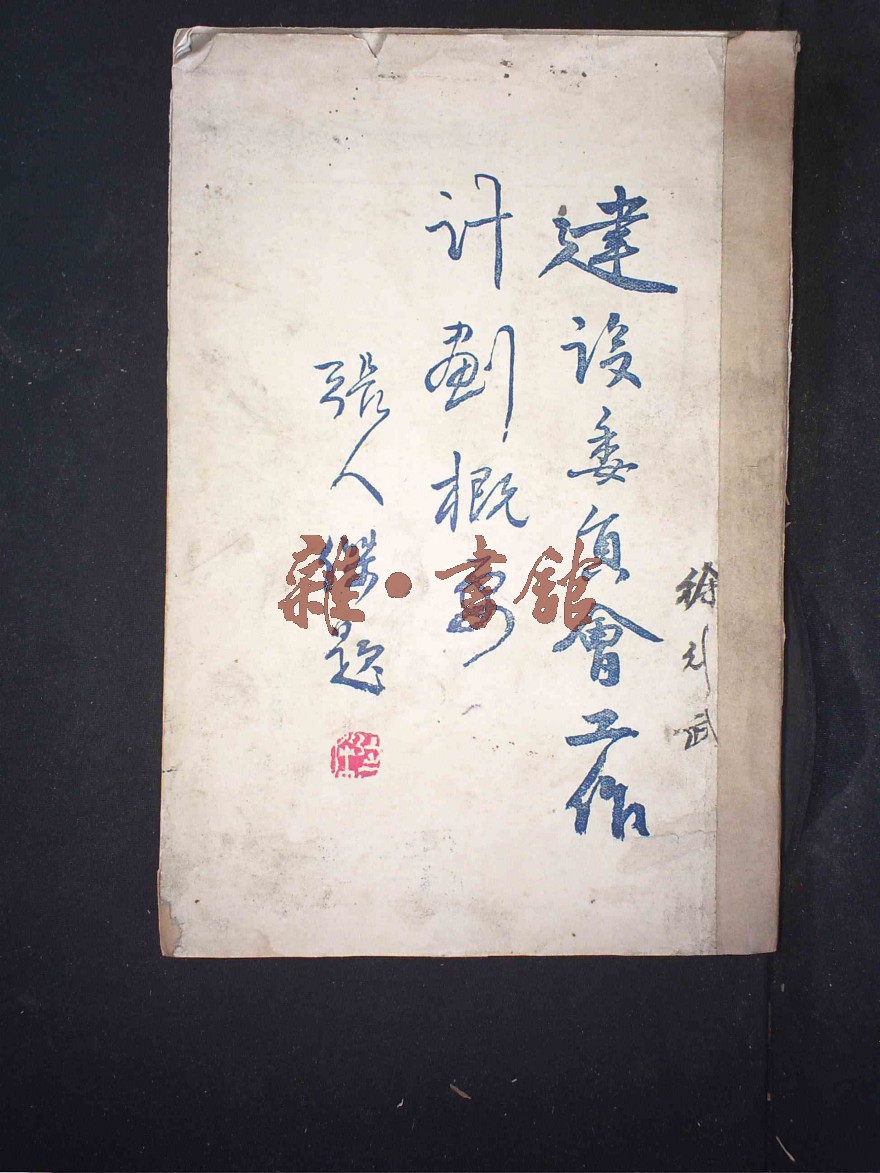 建設委員會工作
計劃概要
張人傑題
雜·書館